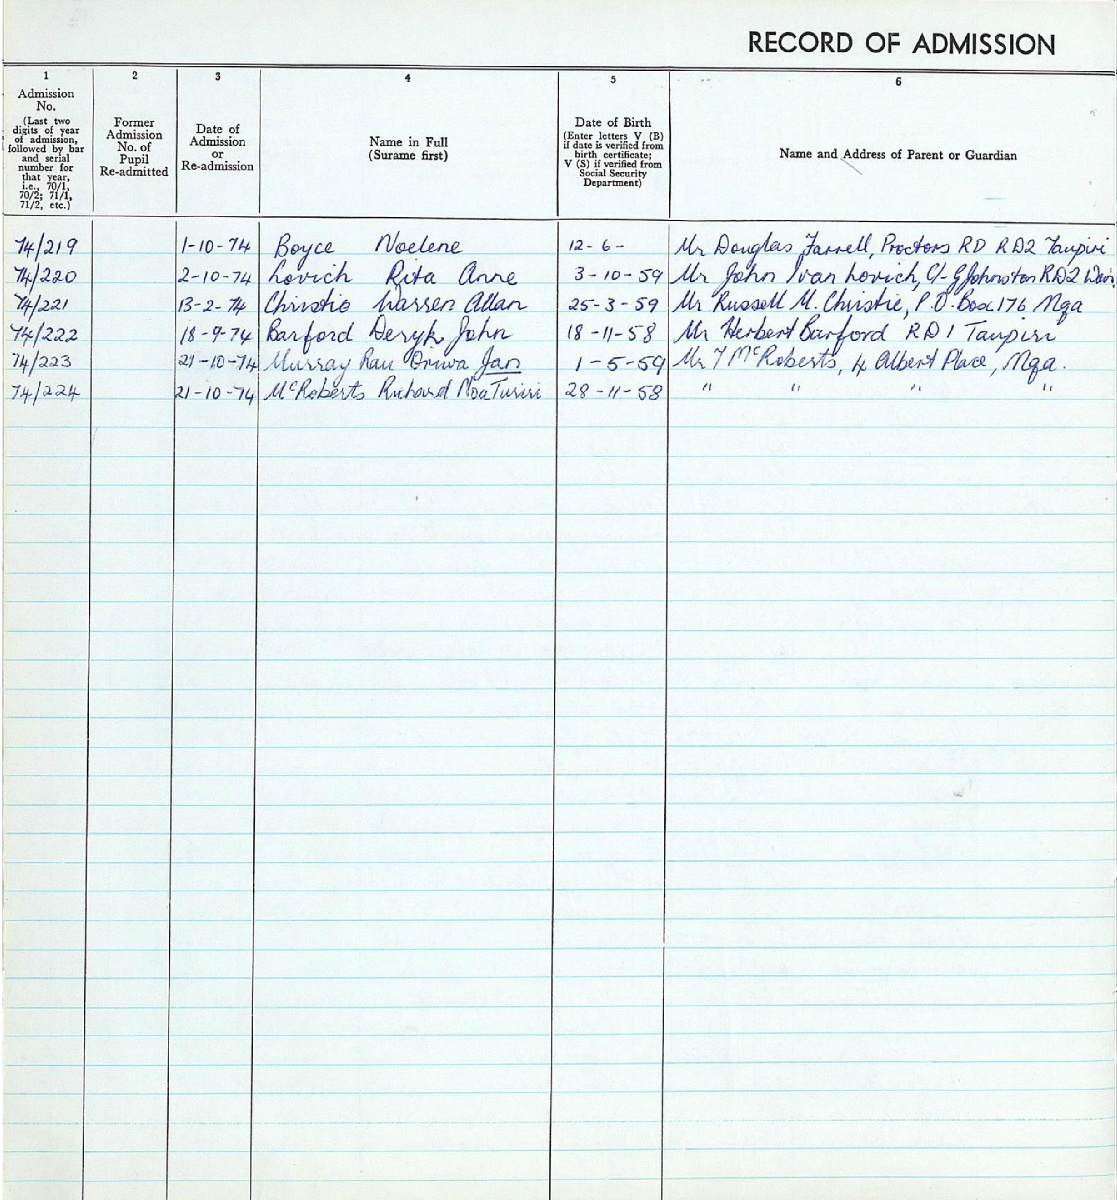 RECORD OF ADMISSION
1 2 3 4 5 6
Admission No. (Last two digits of year of admission, followed by bar and serial number for that year, i.e., 70/1, 70/2; 71/1, 71/2, etc.)
Former Admission No. of Pupil Re-admitted
Date of Admission or Re-admission
Name in Full (Surame first)
Date of Birth (Enter letters V (B) if date is verified from birth certificate; V (S) if verified from Social Security Department)
Name and Address of Parent or Guardian
74/219 1-10-74 Boyce Noelene 12-6- Mr Douglas Farrell, Proctors RD RD2 Taupiri
74/220 2-10-74 Lovich Rita Anne 3-10-59 Mr John Ivan Lovich, C/- G Johnston RD2
74/221 13-2-74 Christie Warren Allan 25-3-59 Mr Russell M. Christie, P.O. Box 176 Nga
74/222 18-9-74 Barford Deryk John 18-11-58 Mr Herbert Barford RD1 Taupiri
74/223 21-10-74 Murray Rau Oriwa Jan 1-5-59 Mr T McRoberts, 4 Albert Place, Nga.
74/224 21-10-74 McRoberts Richard 28-11-58 " " " "